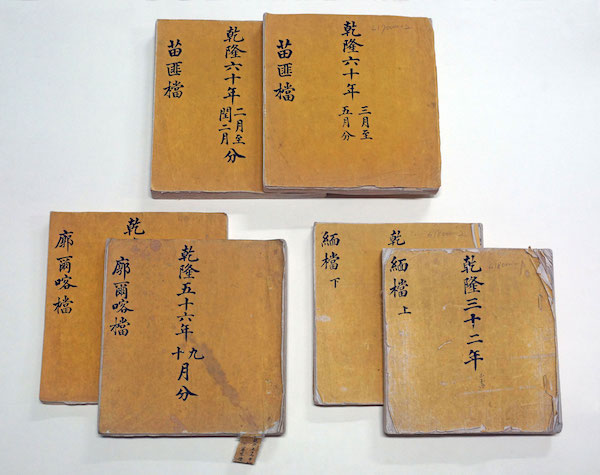 乾隆六十年二月至閏二月分
苗匪檔
乾隆六十年三月至五月分
苗匪檔
乾
廓爾喀檔
乾隆五十六年九十月分
廓爾喀檔
乾
緬檔下
乾隆三十二年
緬檔上